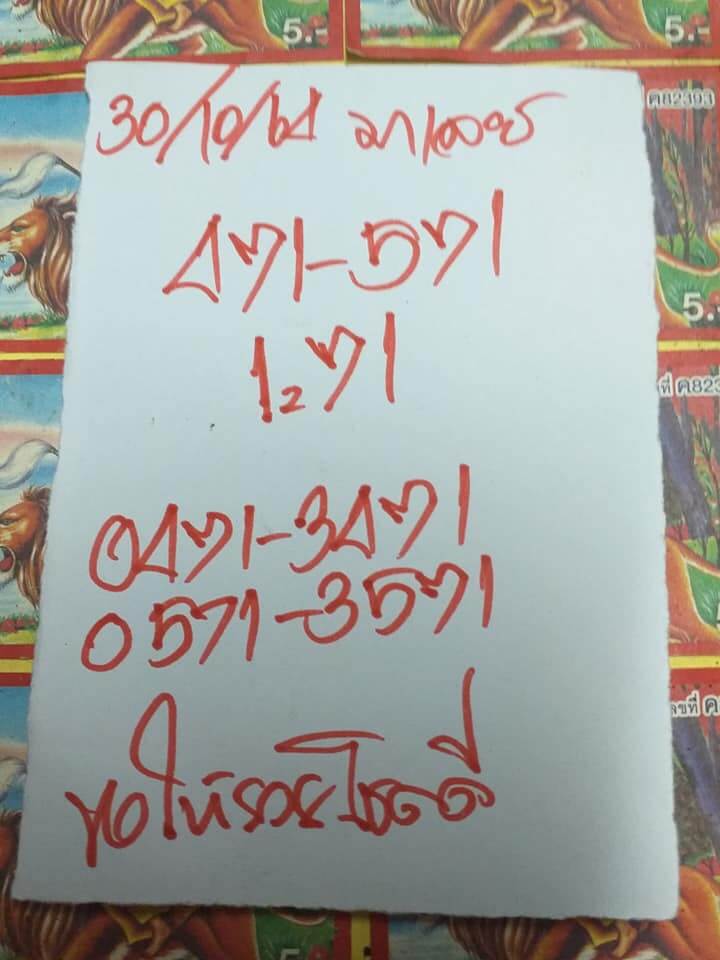 5.-
5.-
ค82393
30/10/61 มาเลย์
471-571
5.-
1271
ที่ ค823
0471-3471
0571-3571
ลขที่ ค
ขอให้รวยโชคดี
5.-
5.-